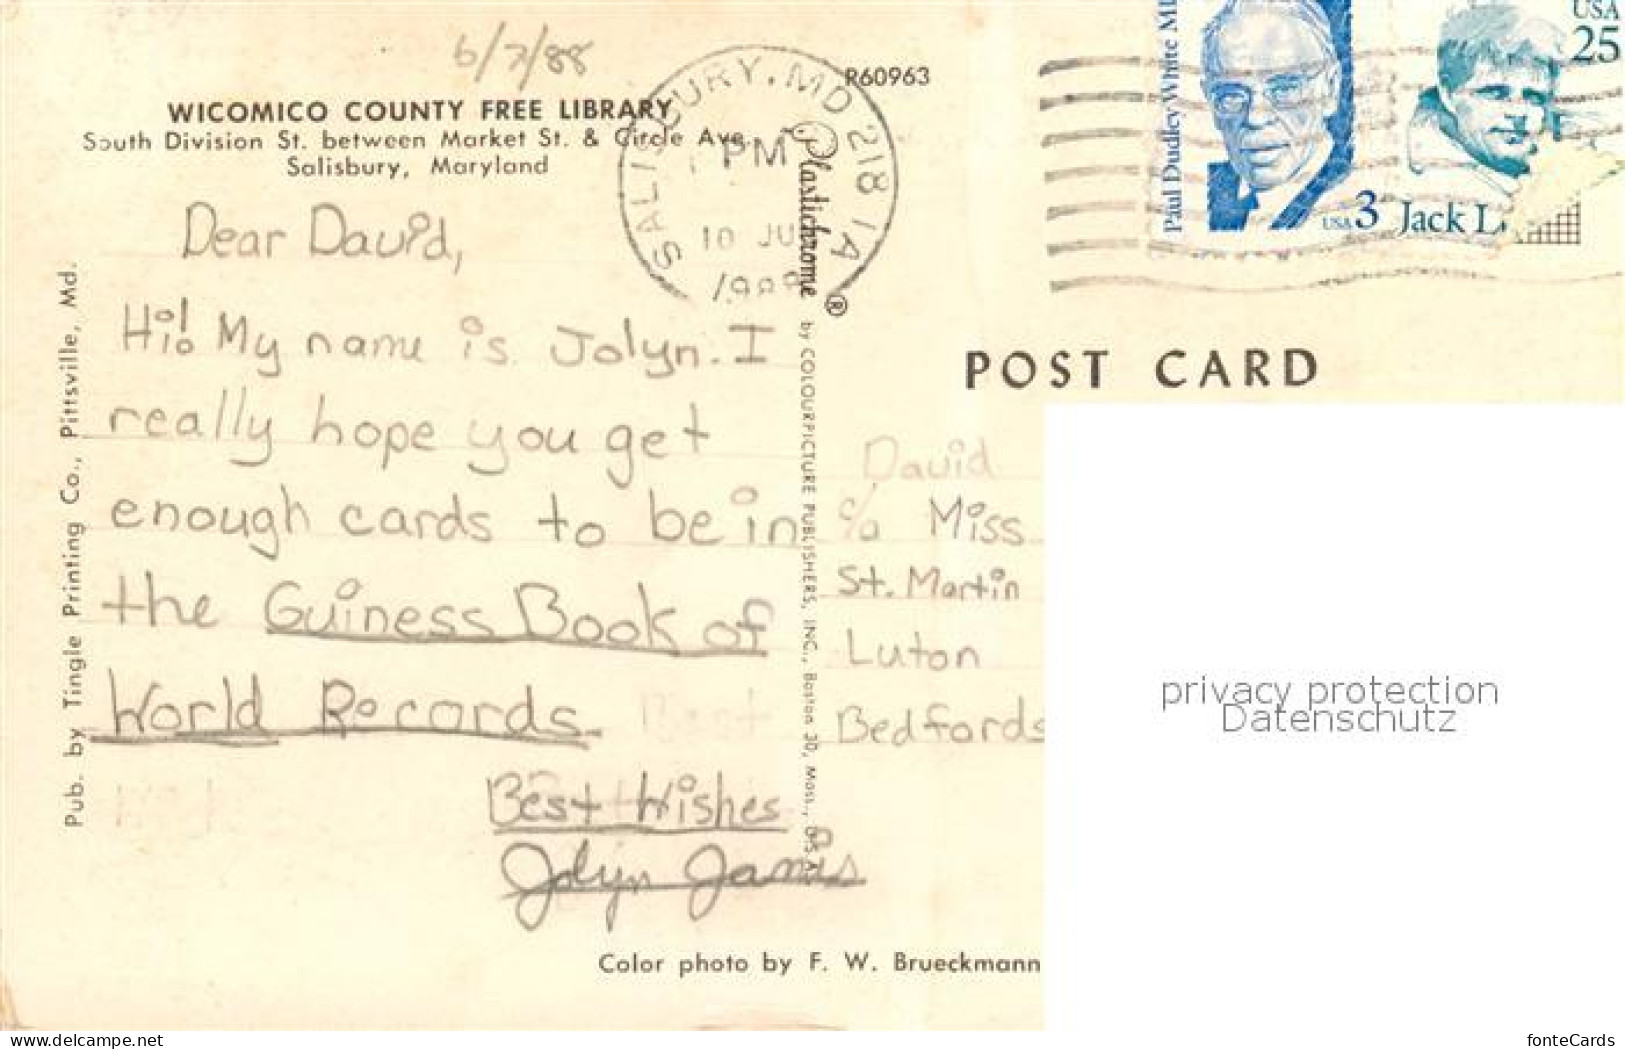 6/7/88
R60963
WICOMICO COUNTY FREE LIBRARY
South Division St. between Market St. & Circle Ave.
Salisbury, Maryland
SALISBURY, MD 218
PM
10 JU
1988
Paul Dudley White MD
USA 3
USA
25
Jack L
Dear David,
Hi! My name is Jolyn. I
really hope you get
enough cards to be in
the Guiness Book of
World Records.
Best Wishes
Jolyn Jamis
Pub. by Tingle Printing Co., Pittsville, Md.
Plastichrome ® by COLOURPICTURE PUBLISHERS, INC., Boston 30, Mass., U.S.A.
POST CARD
David
c/o Miss
St. Martin
Luton
Bedfords
privacy protection
Datenschutz
Color photo by F. W. Brueckmann
www.delcampe.net
fonteCards